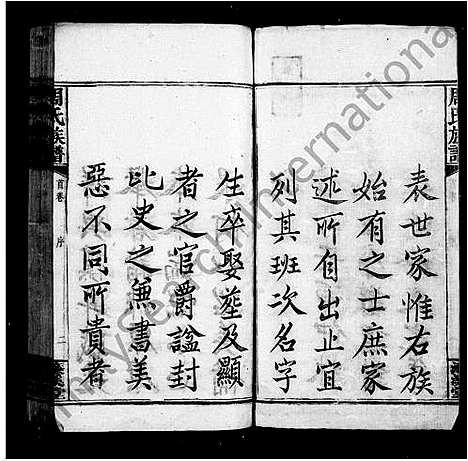 表世家惟右族
始有之士庶家
述所自出止宜
列其班次名字
生卒娶塟及顯
者之官爵諡封
比史之兼書美
惡不同所貴者
周氏族譜
首卷 序
二
周氏族譜
FamilySearch International